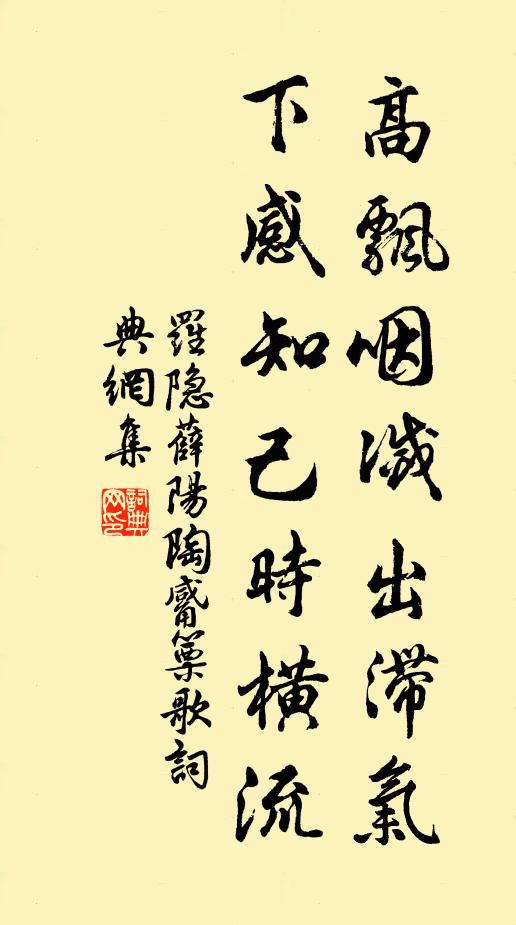 高飄咽滅出滯氣
下感知己時橫流
羅隐薛陽陶觱篥歌詞
典網集
詞典网印